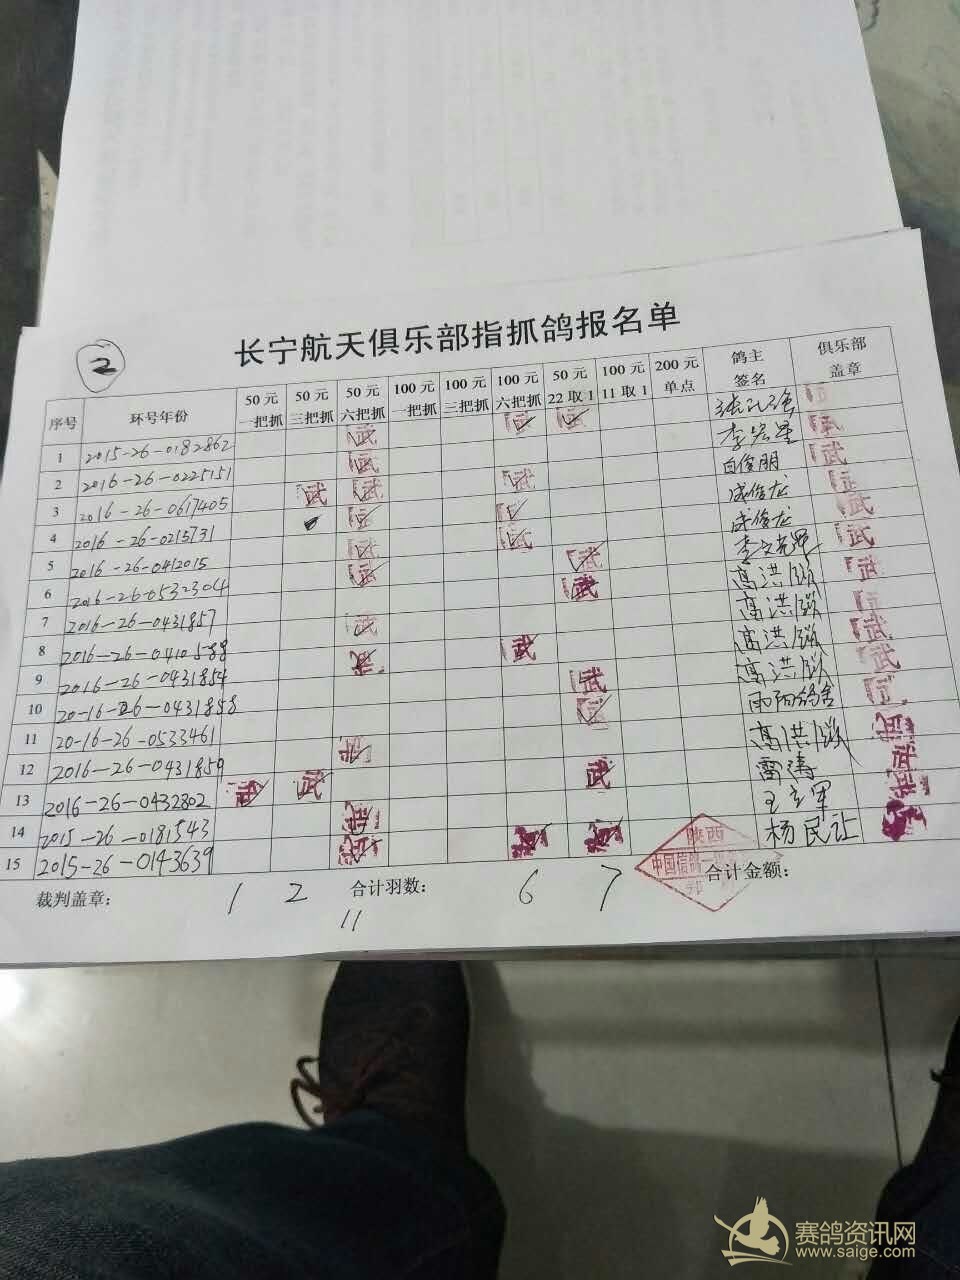 长宁航天俱乐部指抓鸽报名单
2
序号 环号年份 50元一把抓 50元三把抓 50元六把抓 100元一把抓 100元三把抓 100元六把抓 50元22取1 100元11取1 200元单点 鸽主签名 俱乐部盖章
1 2015-26-0182862
2 2016-26-0225151 李宏星
3 2016-26-0617405 武 武 白俊朋 武
4 2016-26-0215731 成俊龙
5 2016-26-0412015 成俊龙 武
6 2016-26-0532304 武 李文亮 武
7 2016-26-0431857 武 高洪 武
8 2016-26-0410588 高洪
9 2016-26-0431854 武 武 高洪 武
10 20-16-26-0431858 武 高洪 武
11 20-16-26-0533461 雨阳鸽舍
12 2016-26-0431859 高洪 武
13 2016-26-0432802 武 武 武 雷涛 武
14 2015-26-0181543 武 王立军 武
15 2015-26-0143639 武 杨民让
裁判盖章： 合计羽数： 合计金额：
1 2 11 6 7
陕西
中国信鸽
赛鸽资讯网
www.saige.com